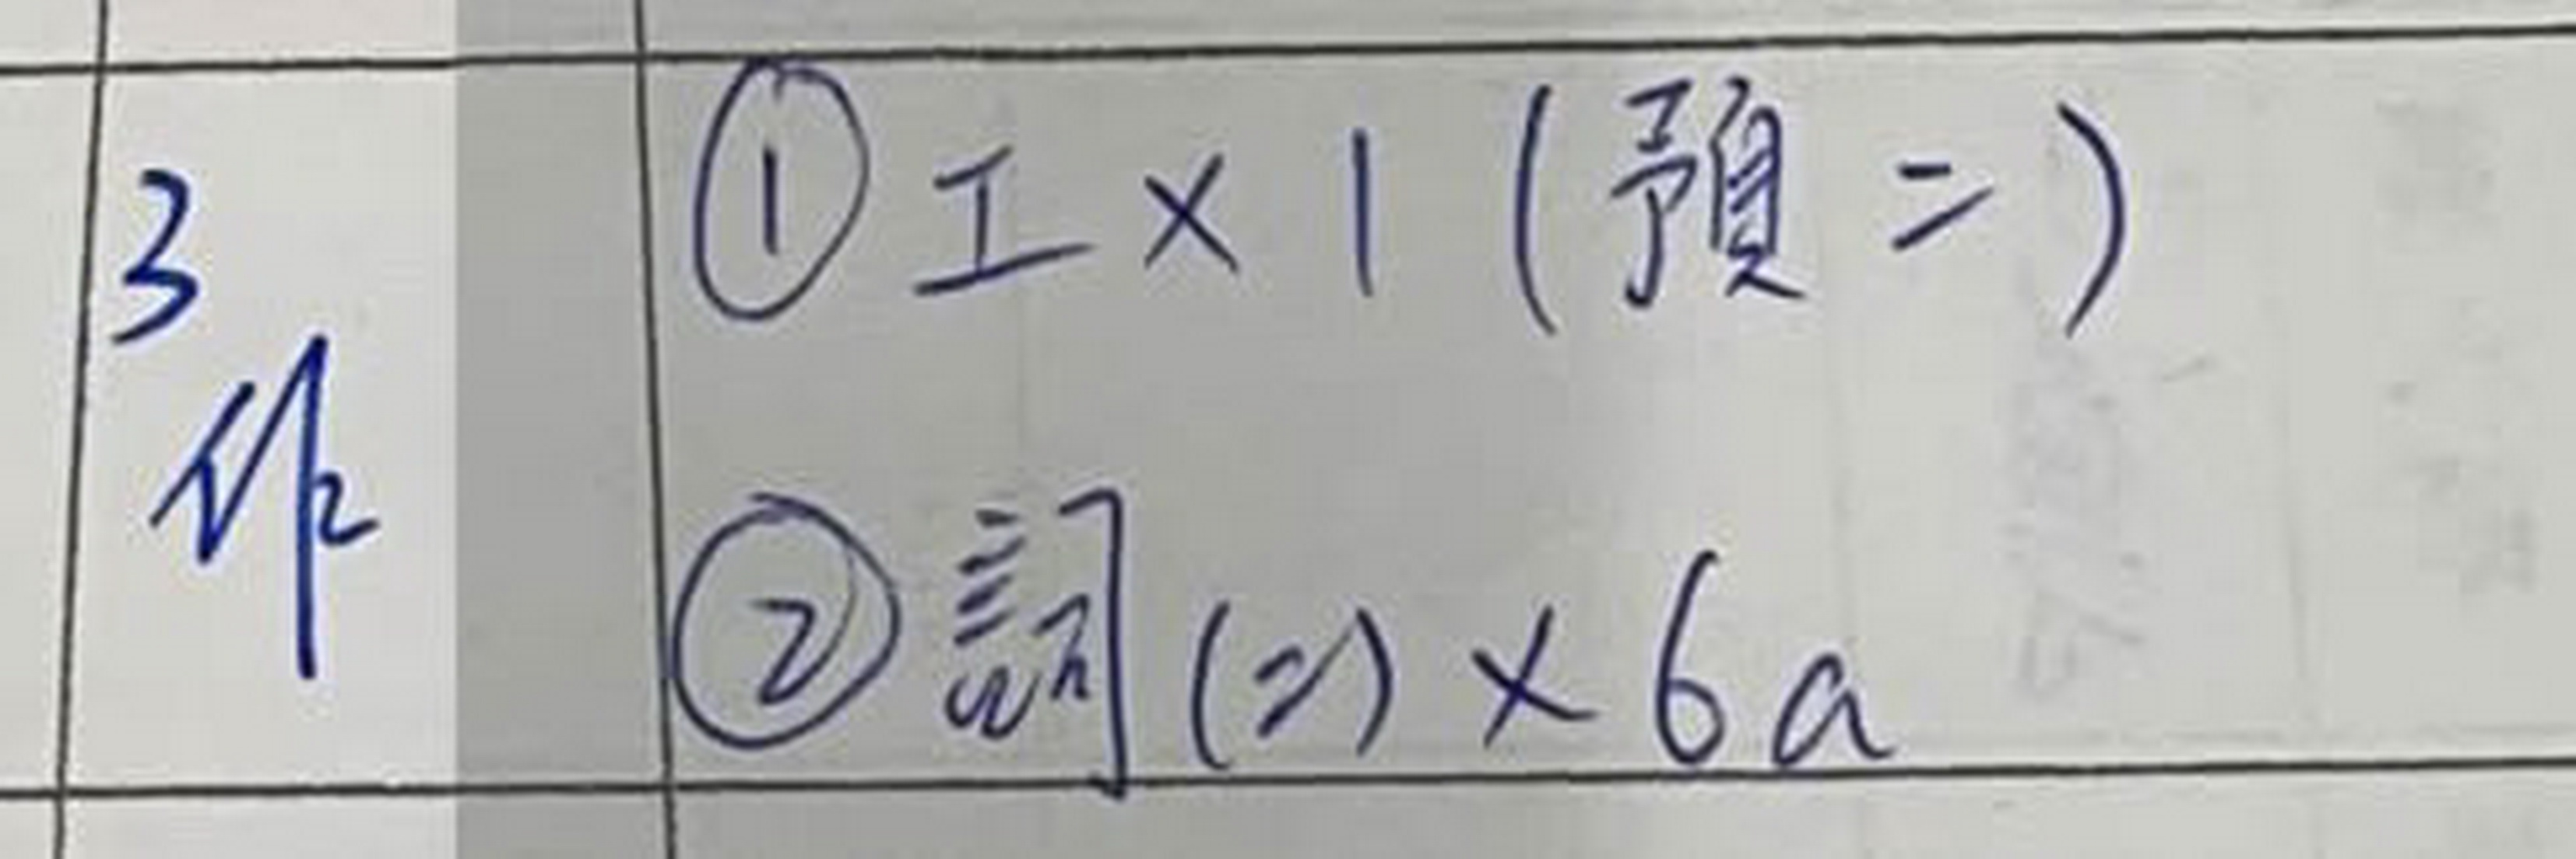 3
作
① 工 × 1 (預二)
② 詞(二) × 6a